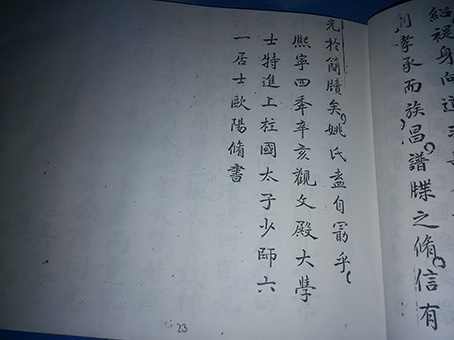 紹裘身向
孝承而族昌譜牒之脩信有
光於簡牘矣姚氏盍自勗乎
熙寧四秊辛亥觀文殿大學
士特進上柱國太子少師六
一居士歐陽脩書
23